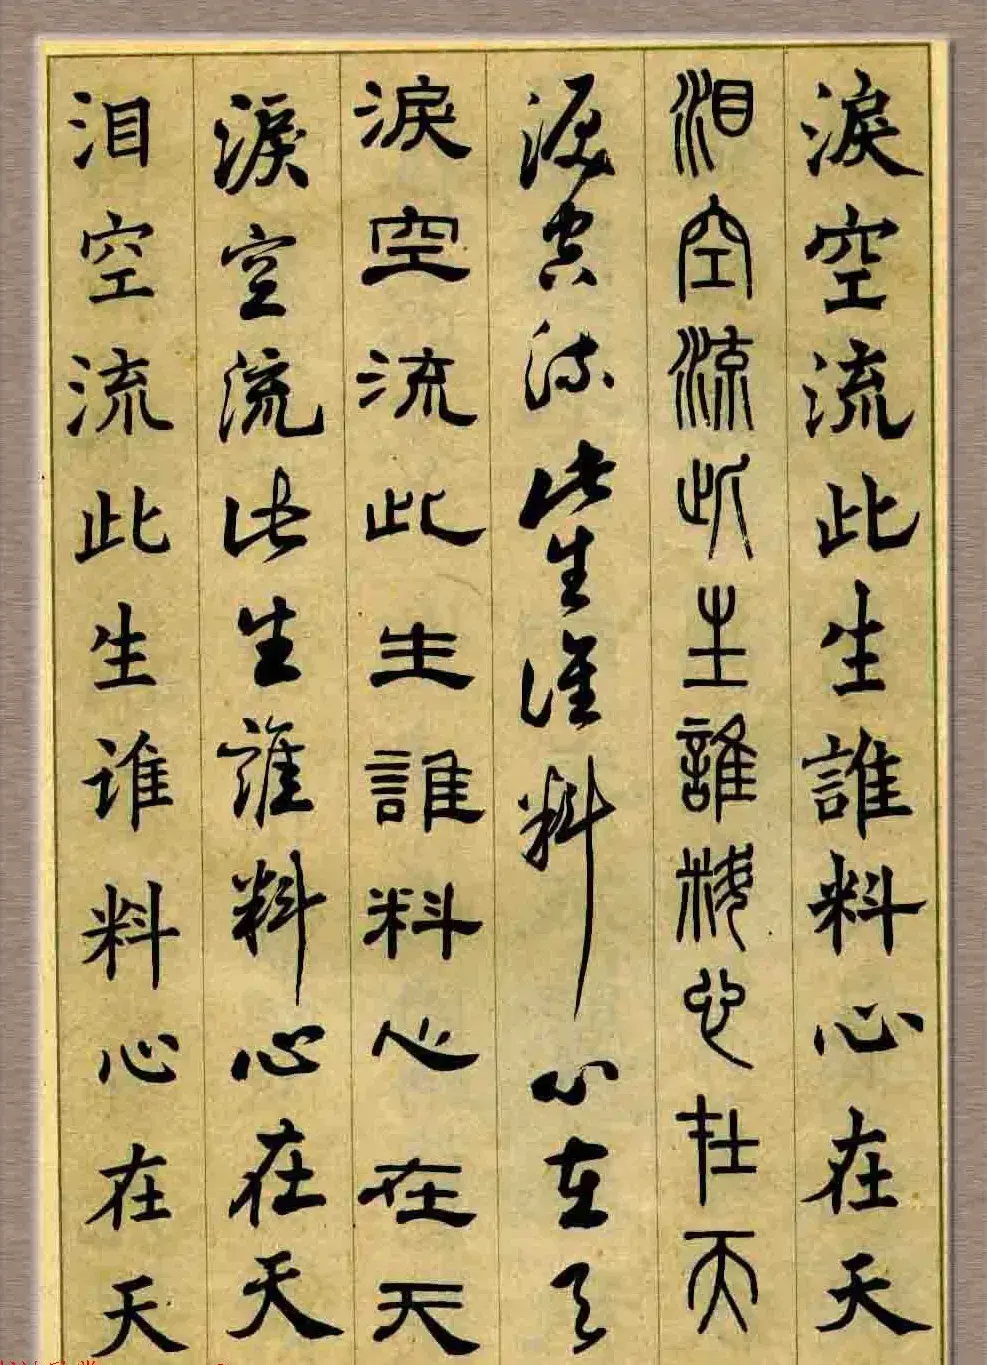 淚空流此生誰料心在天
泪空流此生誰料心在天
淚空流此生谁料心在天
淚空流此生誰料心在天
淚空流此生誰料心在天
泪空流此生谁料心在天